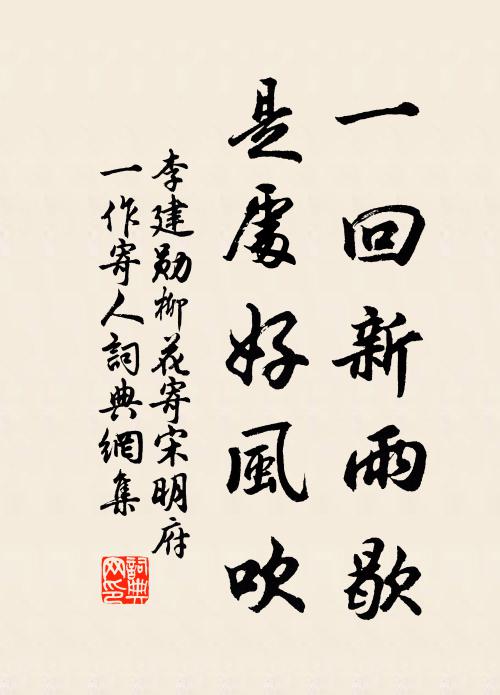 一回新雨歇
是處好風吹
李建勋柳花寄宋明府
一作寄人詞典網集
詞典
网印